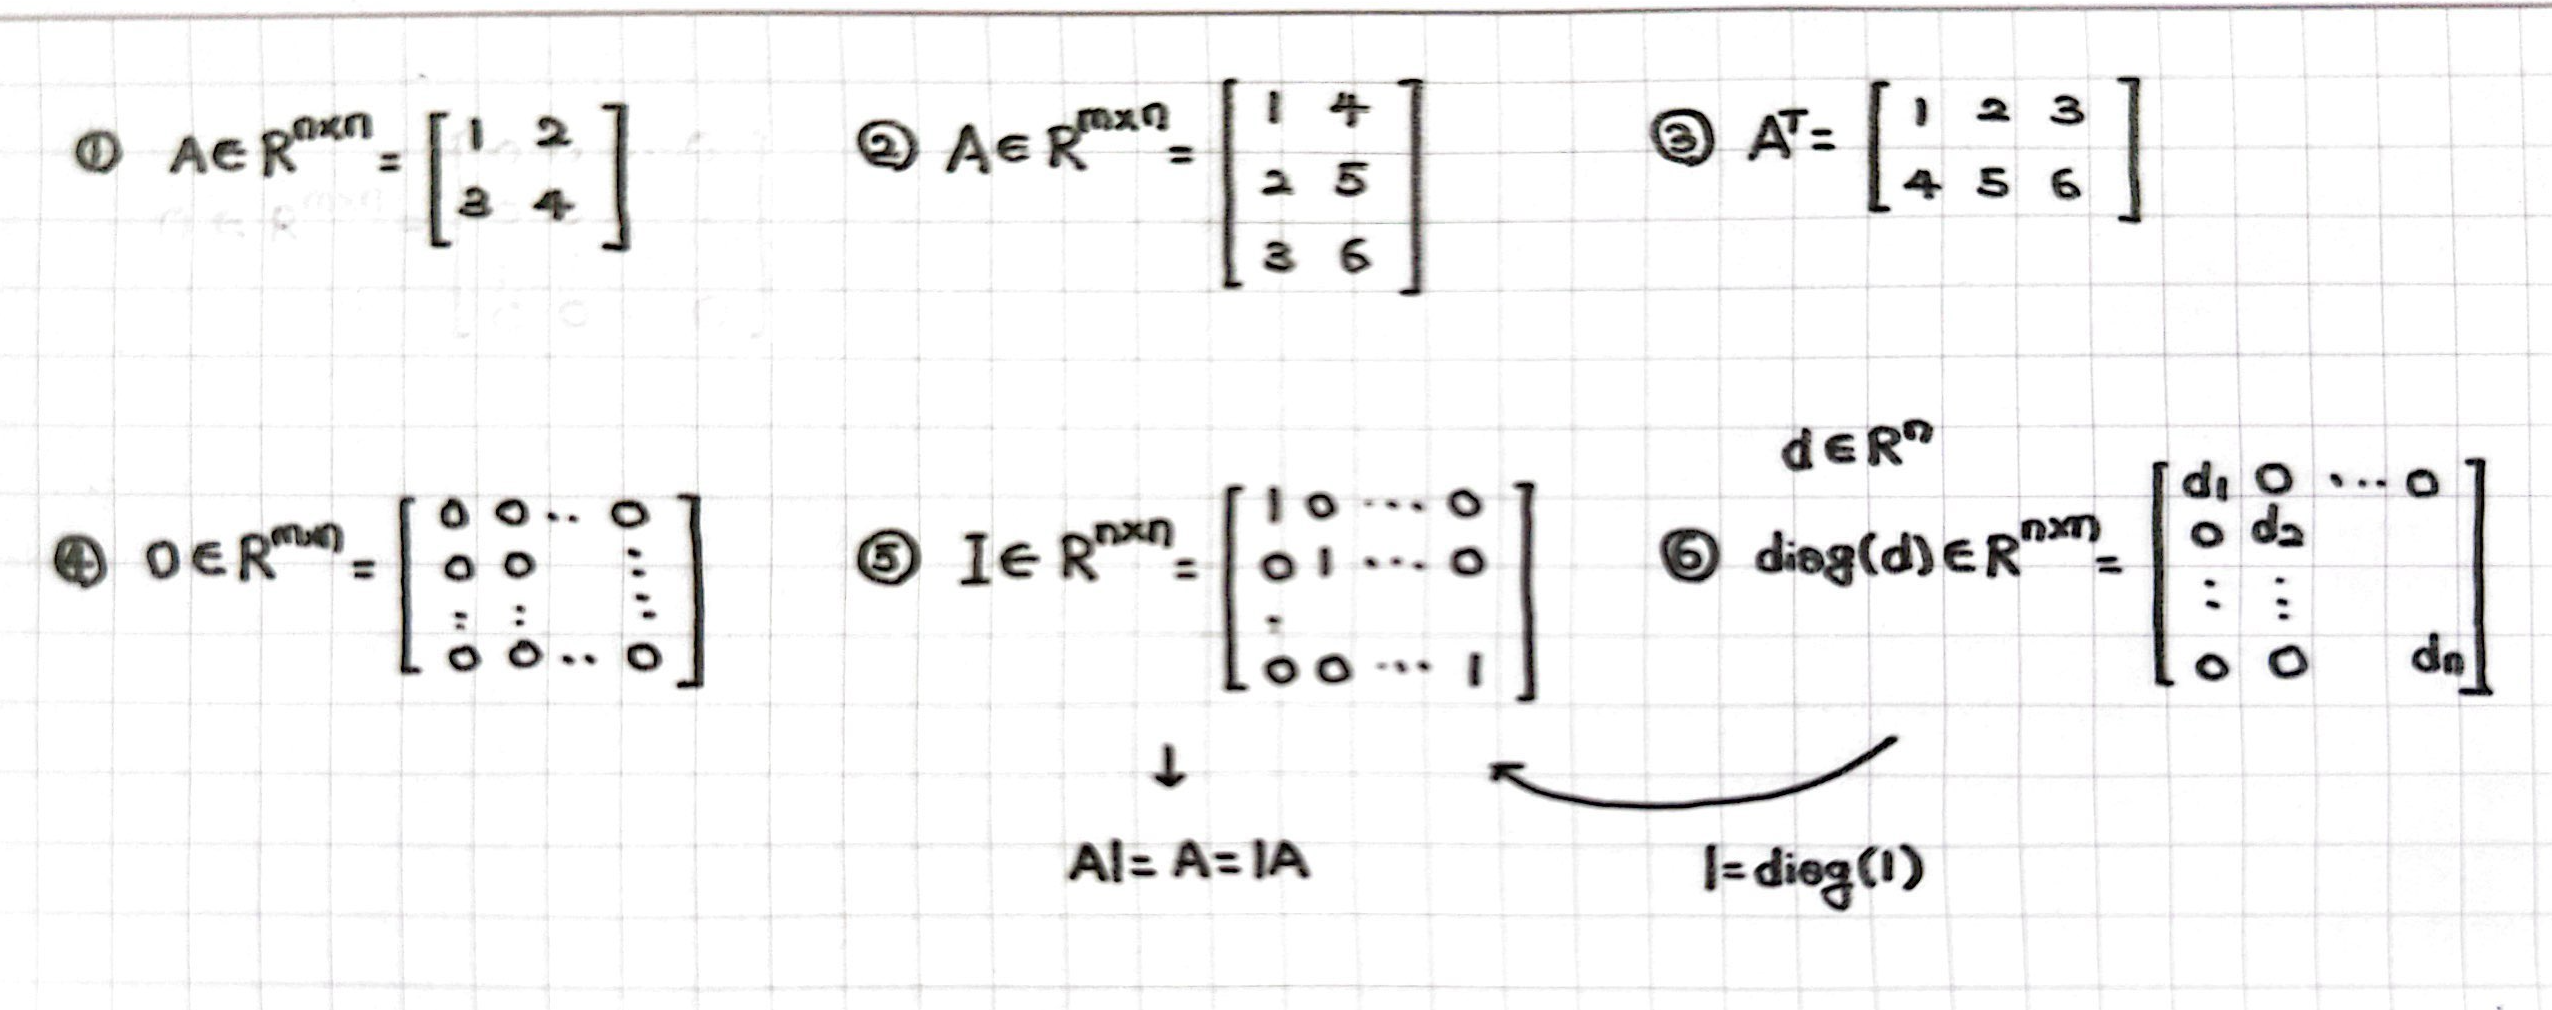 ① A∈R^{n×n} = [1 2; 3 4]
② A∈R^{m×n} = [1 4; 2 5; 3 6]
③ A^T = [1 2 3; 4 5 6]
④ 0∈R^{m×n} = [0 0 ‥ 0; 0 0 ⋮; ⋮ ⋮ ⋮; 0 0 ‥ 0]
⑤ I∈R^{n×n} = [1 0 ⋯ 0; 0 1 ⋯ 0; ⋮; 0 0 ⋯ 1]
d∈R^n
⑥ diag(d)∈R^{n×n} = [d₁ 0 ⋯ 0; 0 d₂; ⋮ ⋮; 0 0 dₙ]
↓
AI = A = IA
I = diag(1)